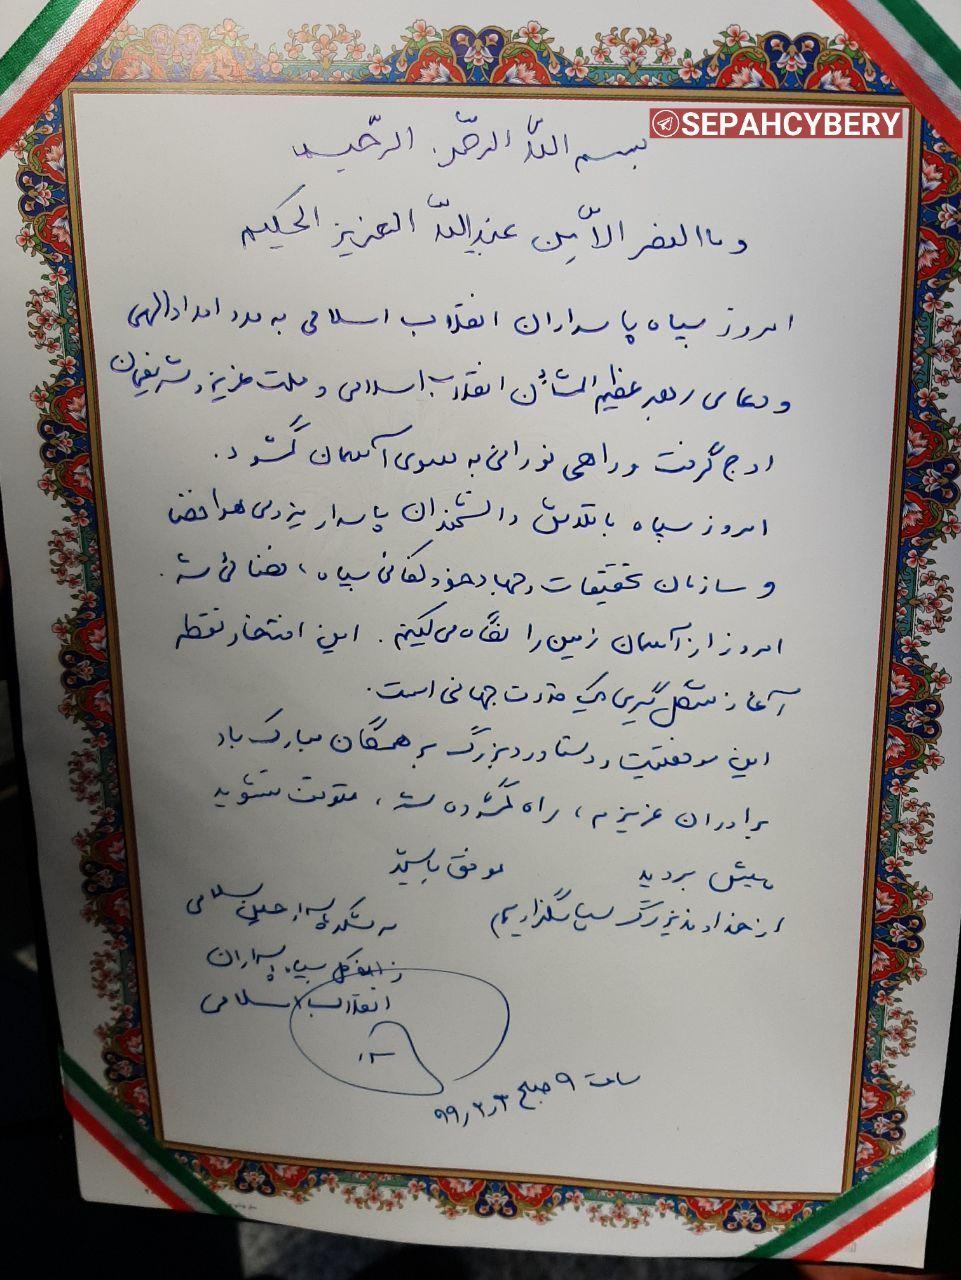 SEPAHCYBERY
بسم اللّه الرحمن الرحیم
و ما النصر الا من عند اللّه العزیز الحکیم
امروز سپاه پاسداران انقلاب اسلامی به مدد امداد الهی
و دعای رهبر عظیم الشأن انقلاب اسلامی و ملت عزیز و شریفمان
اوج گرفت و راهی نورانی به سوی آسمان گشود.
امروز سپاه با تلاش دانشمندان پاسدار نیروی هوا فضا
و سازمان تحقیقات و جهاد خودکفائی سپاه، فضائی شد.
امروز از آسمان زمین را نگاه می‌کنیم. این افتخار نقطه
آغاز شکل گیری یک قدرت جهانی است.
این موفقیت و دستاورد بزرگ بر همگان مبارک باد
برادران عزیزم، راه گشوده شد، متوقف نشوید
پیش بروید موفق باشید
از خداوند بزرگ سپاسگزاریم
سرلشکر پاسدار حسین سلامی
فرمانده کل سپاه پاسداران
انقلاب اسلامی
ساعت ۹ صبح